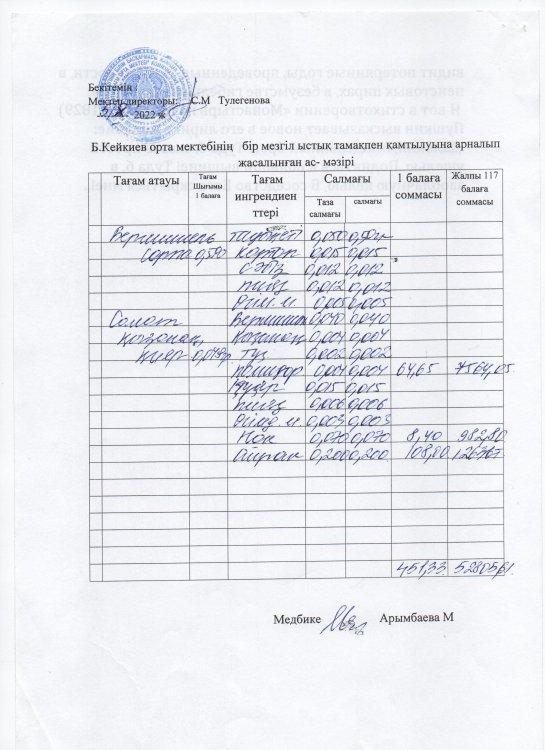 Бекітемін :
Мектеп директоры: С.М Тулегенова
31/X 2022 ж
Б.Кейкиев орта мектебінің бір мезгіл ыстық тамақпен қамтылуына арналып
жасалынған ас- мәзірі
Тағам атауы Тағам Шығымы 1 балаға Тағам ингрендиен ттері Салмағы 1 балаға соммасы Жалпы 117 балаға соммасы
Таза салмағы салмағы
Вермишель 0,050
Сорпа 0,590 Картоп 0,015 0,015
сәбіз 0,012 0,012
пияз 0,012 0,012
Өсім м. 0,005 0,005
Салат Вермишел 0,040 0,040
қызанақ Қызанақ 0,004 0,004
қияр Тұз 0,002 0,002
помидор 0,004 0,004 64,65 7564,05
Қияр 0,015 0,015
пияз 0,006 0,006
Өсімд м 0,003 0,003
Нан 0,070 0,070 8,40 982,80
Айран 0,200 0,200 108,80
451,33 52805,61
Медбике Арымбаева М